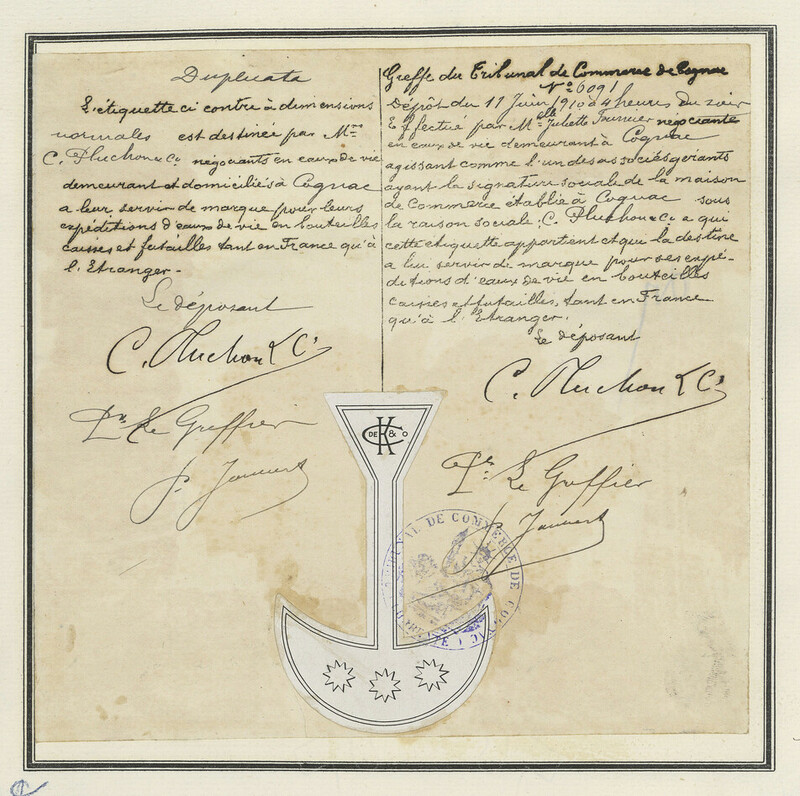 Duplicata
L'étiquette ci contre à dimensions
normales est destinée par Mrs
C. Pluchon & Co négociants en eaux de vie
demeurant et domiciliés à Cognac
a leur servir de marque pour leurs
expéditions d'eaux de vie en bouteilles
caisses et futailles tant en France qu'à
l'Etranger -
Le déposant
C. Pluchon & Co
Pr Le Greffier
Greffe du Tribunal de Commerce de Cognac
No 6091
Dépôt du 11 Juin 1910 à 4 heures du soir
Effectué par Melle Juliette négociante
en eaux de vie demeurant à Cognac
agissant comme l'un des associés gérants
ayant la signature sociale de la maison
de Commerce établie à Cognac sous
la raison sociale: C. Pluchon & Co a qui
cette étiquette appartient et qui la destine
a lui servir de marque pour ses expé-
ditions d'eaux de vie en bouteilles
caisses et futailles, tant en France
qu'à l'Etranger.
Le déposant
C. Pluchon & Co
Pr Le Greffier
K
DE C & O
TRIBUNAL DE COMMERCE DE COGNAC (CHARENTE)